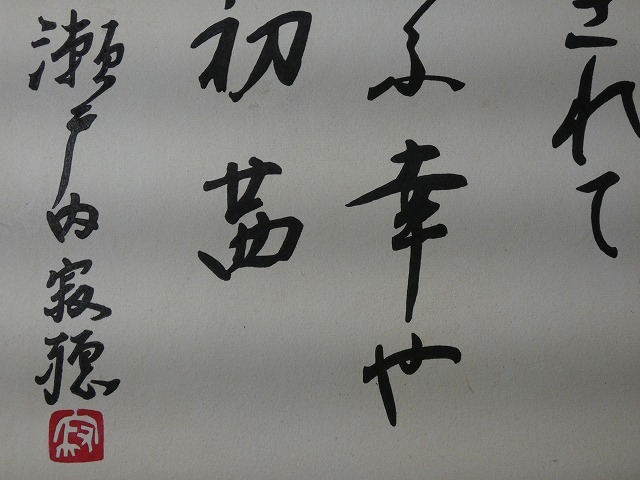 されて
ふ幸や
初茜
瀬戸内寂聴
寂